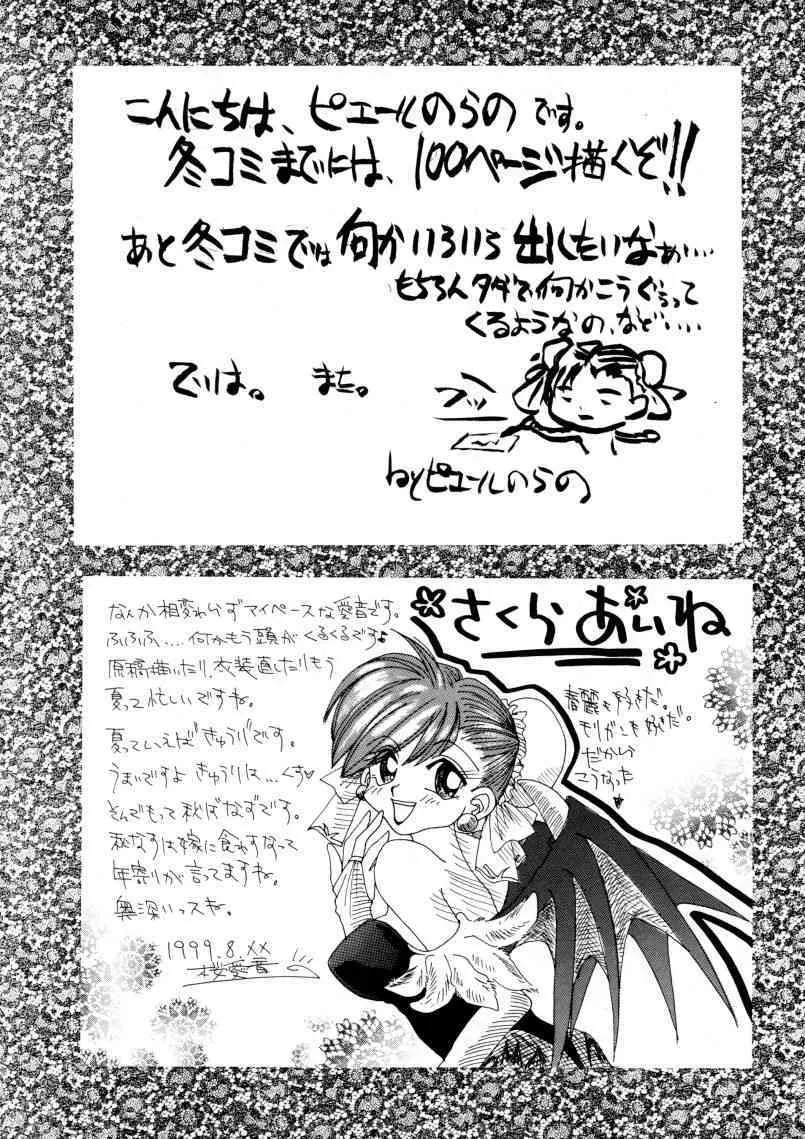 こんにちは、ピエールのらの です。
冬コミまでには、100ページ描くぞ!!
あと冬コミでは何かいろいろ出したいなぁ…
もちろんタダで何かこうぐぅって
くるようなの、など・・・・
では。 また。
ブッ
byピエールのらの
さくら あいね
なんか相変わらずマイペースな愛音です。
ふふふ……何かもう頭がくるくるです♪
原稿描いたり、衣装直したりもう
夏って忙しいですね。
夏っていえばきゅうりです。
うまいですよ きゅうりは…くす♡
そんでもって秋はなすです。
秋なすは嫁に食わすなって
年寄りが言ってますね。
奥深いっスね。
1999.8.××
桜愛音
春麗も好きだ。
モリガンも好きだ。
だから
こうなった